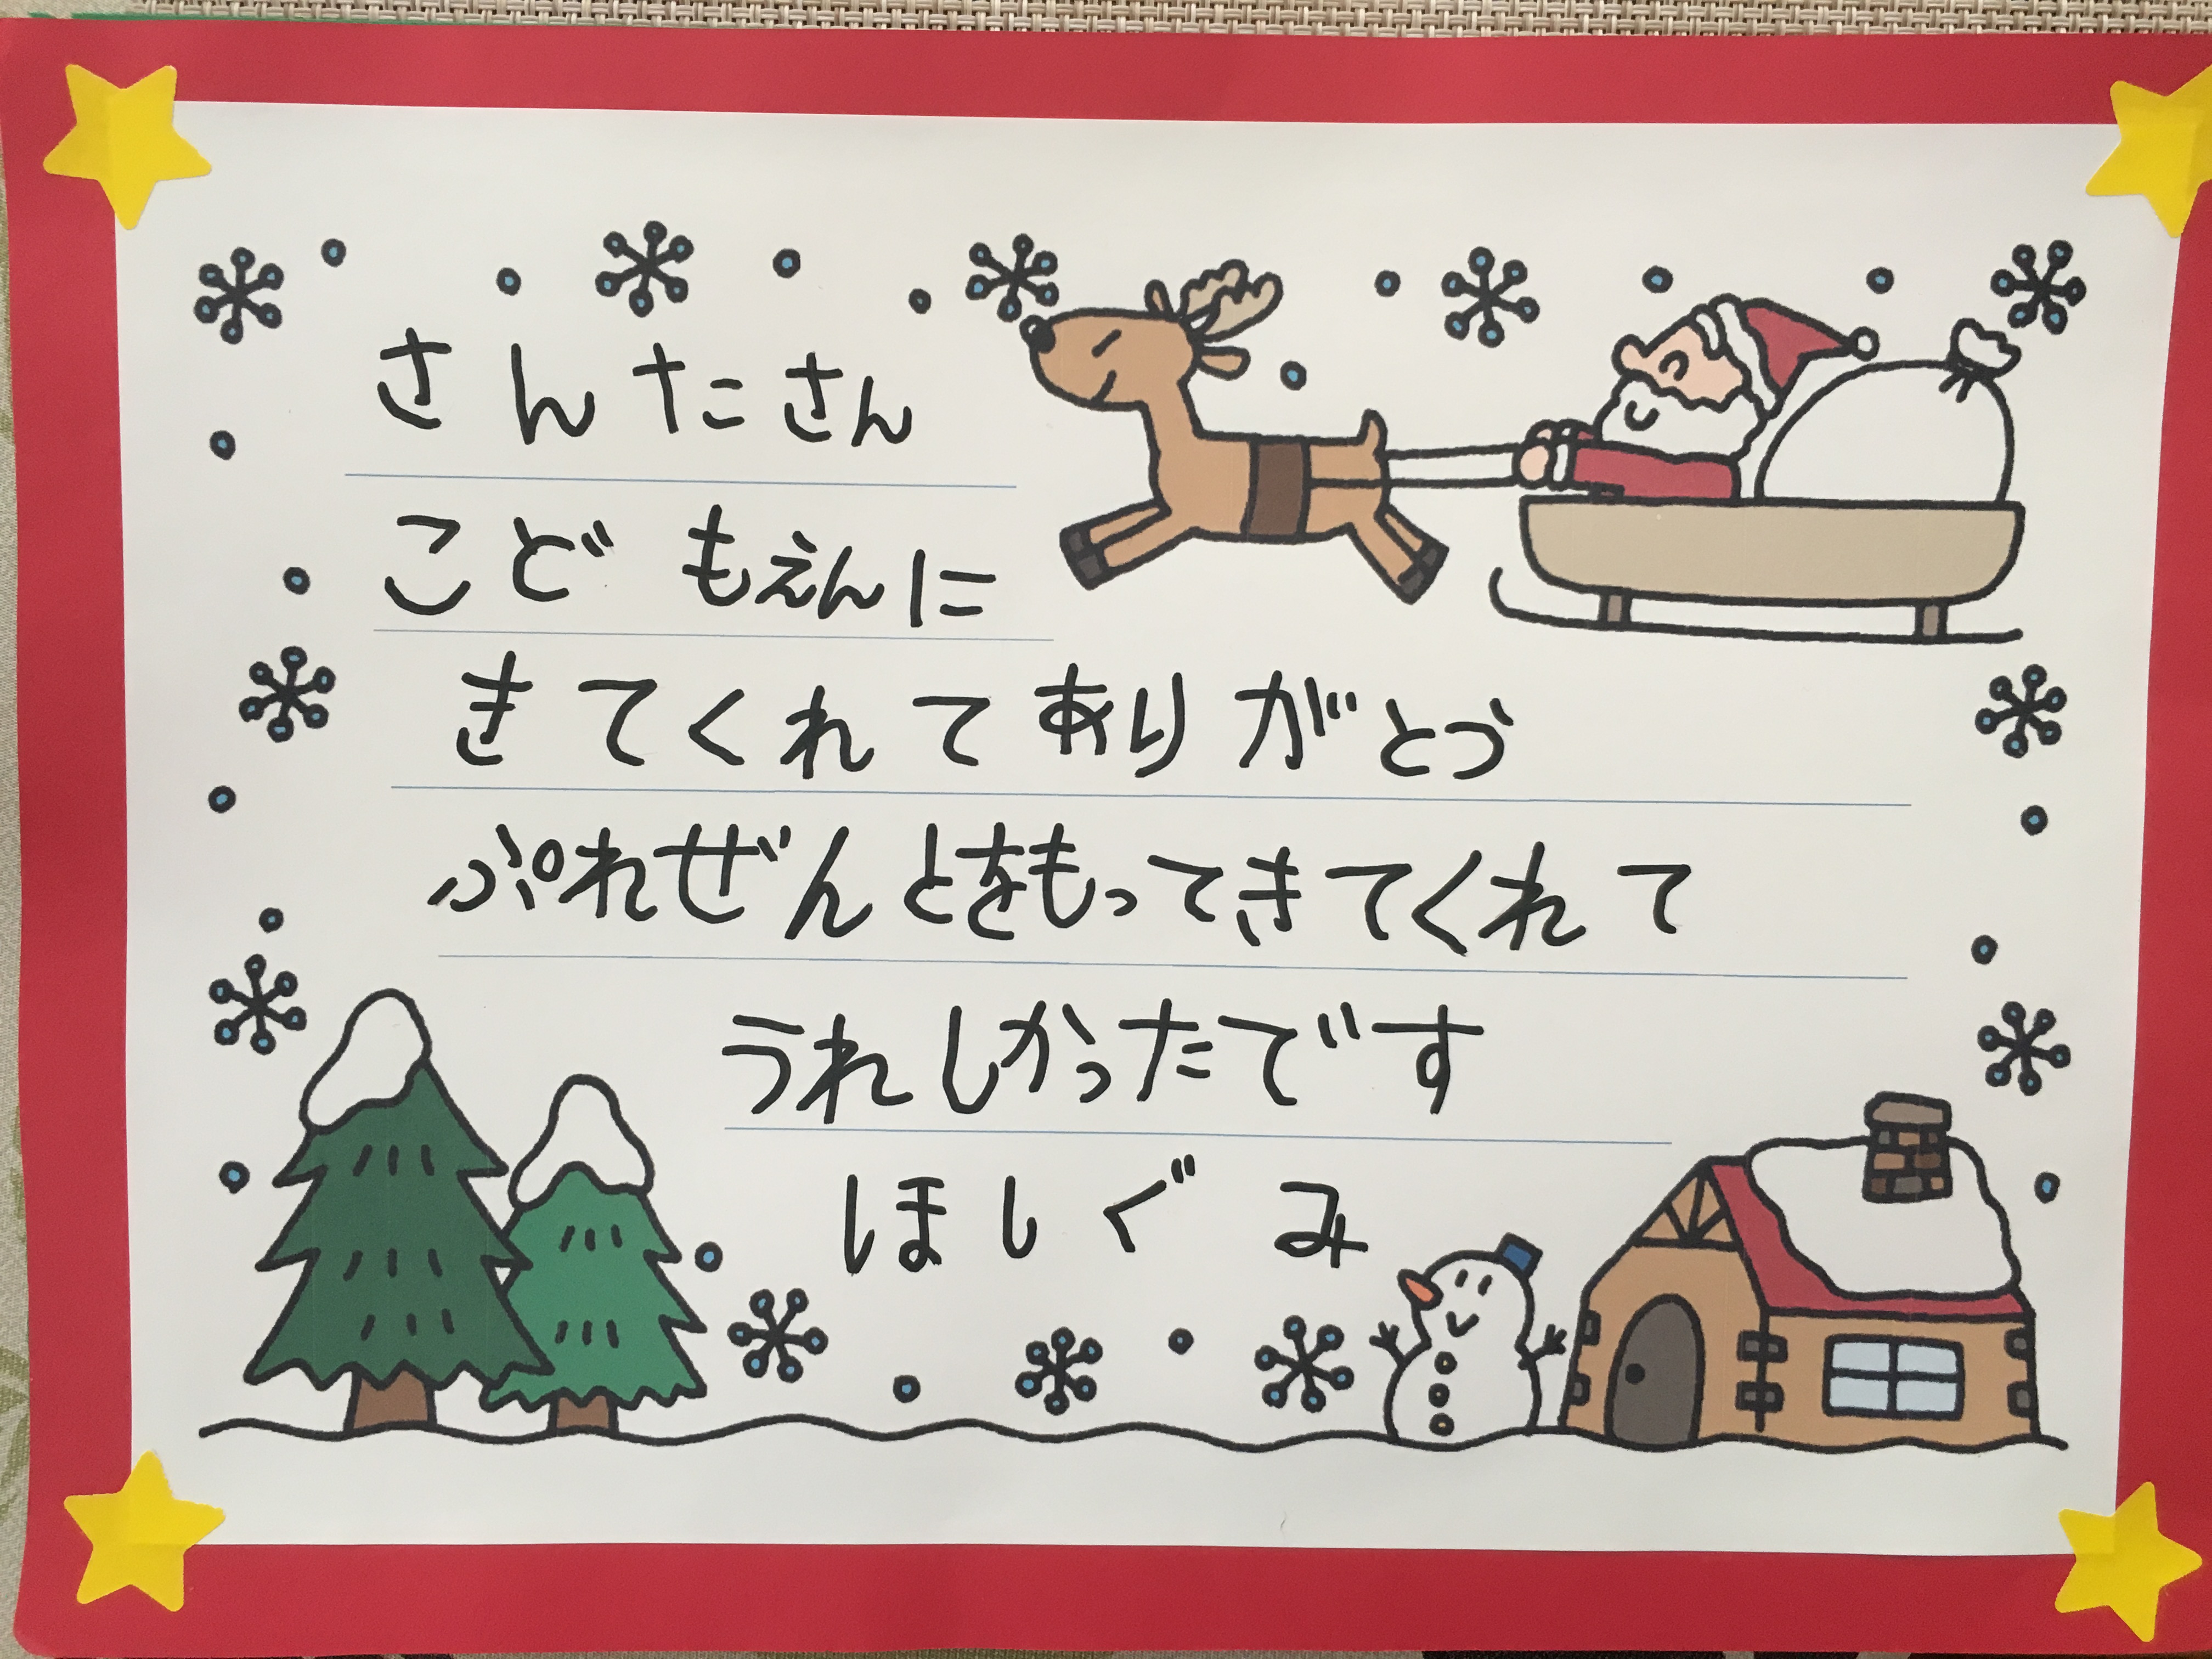 さんたさん
こどもえんに
きてくれてありがとう
ぷれぜんとをもってきてくれて
うれしかったです
ほしぐみ